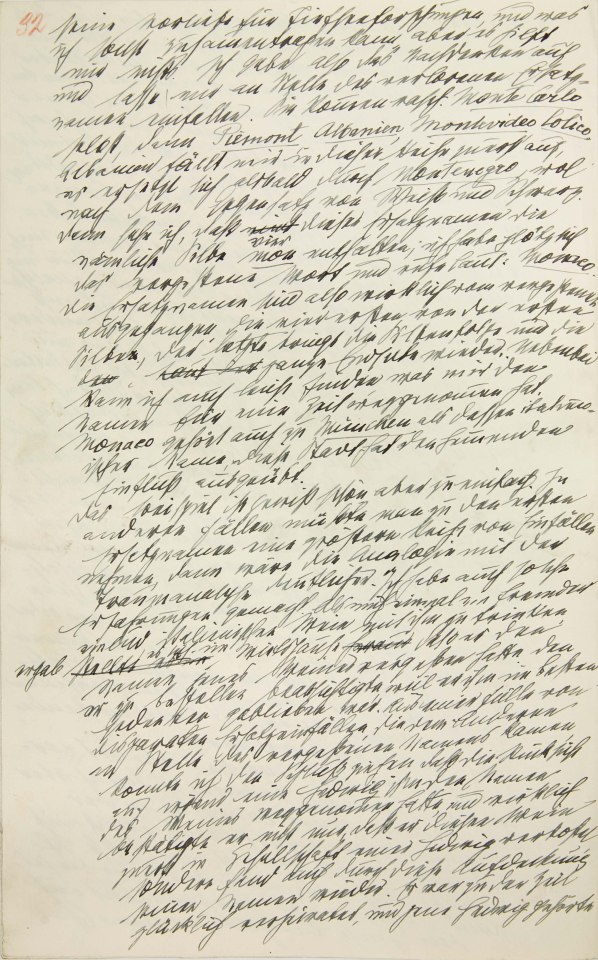 32
seine Vorliebe für Tiefseeforschungen, und was
ich sonst zusammentragen kann, aber es hilft
mir nichts. Ich gebe also das Nachdenken auf
und lasse mir an Stelle des verlorenen Ersatz-
namen einfallen. Sie kommen rasch. Monte Carlo
selbst, dann Piemont, Albanien, Montevideo, Colico.
Albanien fällt mir in dieser Reihe zuerst auf,
es ersetzt sich alsbald durch Montenegro, wol
nach dem Gegensatz von Weiß und Schwarz.
Dann sehe ich, daß vier dieser Ersatznamen die
nämliche Silbe mon enthalten; ich habe plötzlich
das vergessene Wort und rufe laut: Monaco.
Die Ersatznamen sind also wirklich vom vergessenen
ausgegangen, die vier ersten von der ersten
Silbe, der letzte bringt die Silbenfolge und die
ganze Endsilbe wieder. Nebenbei
kann ich auch leicht finden was mir den
Namen für eine Zeit weggenommen hat.
Monaco gehört auch zu München als dessen italieni-
scher Name, diese Stadt hat den hemmenden
Einfluß ausgeübt.
Das Beispiel ist gewiß schön aber zu einfach. In
anderen Fällen müßte man zu den ersten
Ersatznamen eine größere Reihe von Einfällen
nehmen, dann wäre die Analogie mit der
Traumanalyse deutlicher. Ich habe auch solche
Erfahrungen gemacht. Als mich einmal ein Fremder
einlud italienischen Wein mit ihm zu trinken,
ergab es sich im Wirtshause, daß er den
Namen jenes Weines vergessen hatte den
er zu bestellen beabsichtigte, weil er ihm im besten
Gedenken geblieben war. Aus einer Fülle von
disparaten Ersatzeinfällen, die dem Anderen
an Stelle des vergessenen Namens kamen
konnte ich den Schluß ziehen daß die Rücksicht
auf irgend eine Hedwig ihm den Namen
des Weines weggenommen hatte und wirklich
bestätigte er nicht nur, daß er diesen Wein
zuerst in Gesellschaft einer Hedwig verkostet
sondern fand auch durch diese Aufdeckung
seinen Namen wieder. Er war zu der Zeit
glücklich verheiratet, und jene Hedwig gehörte